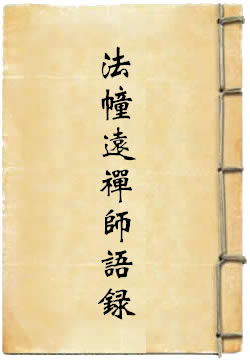 法幢遠禪師語録